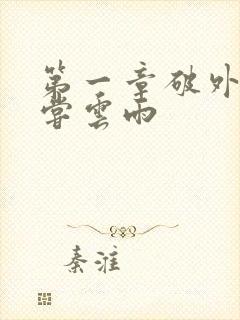 第一章破外
嘗雲雨
秦淮